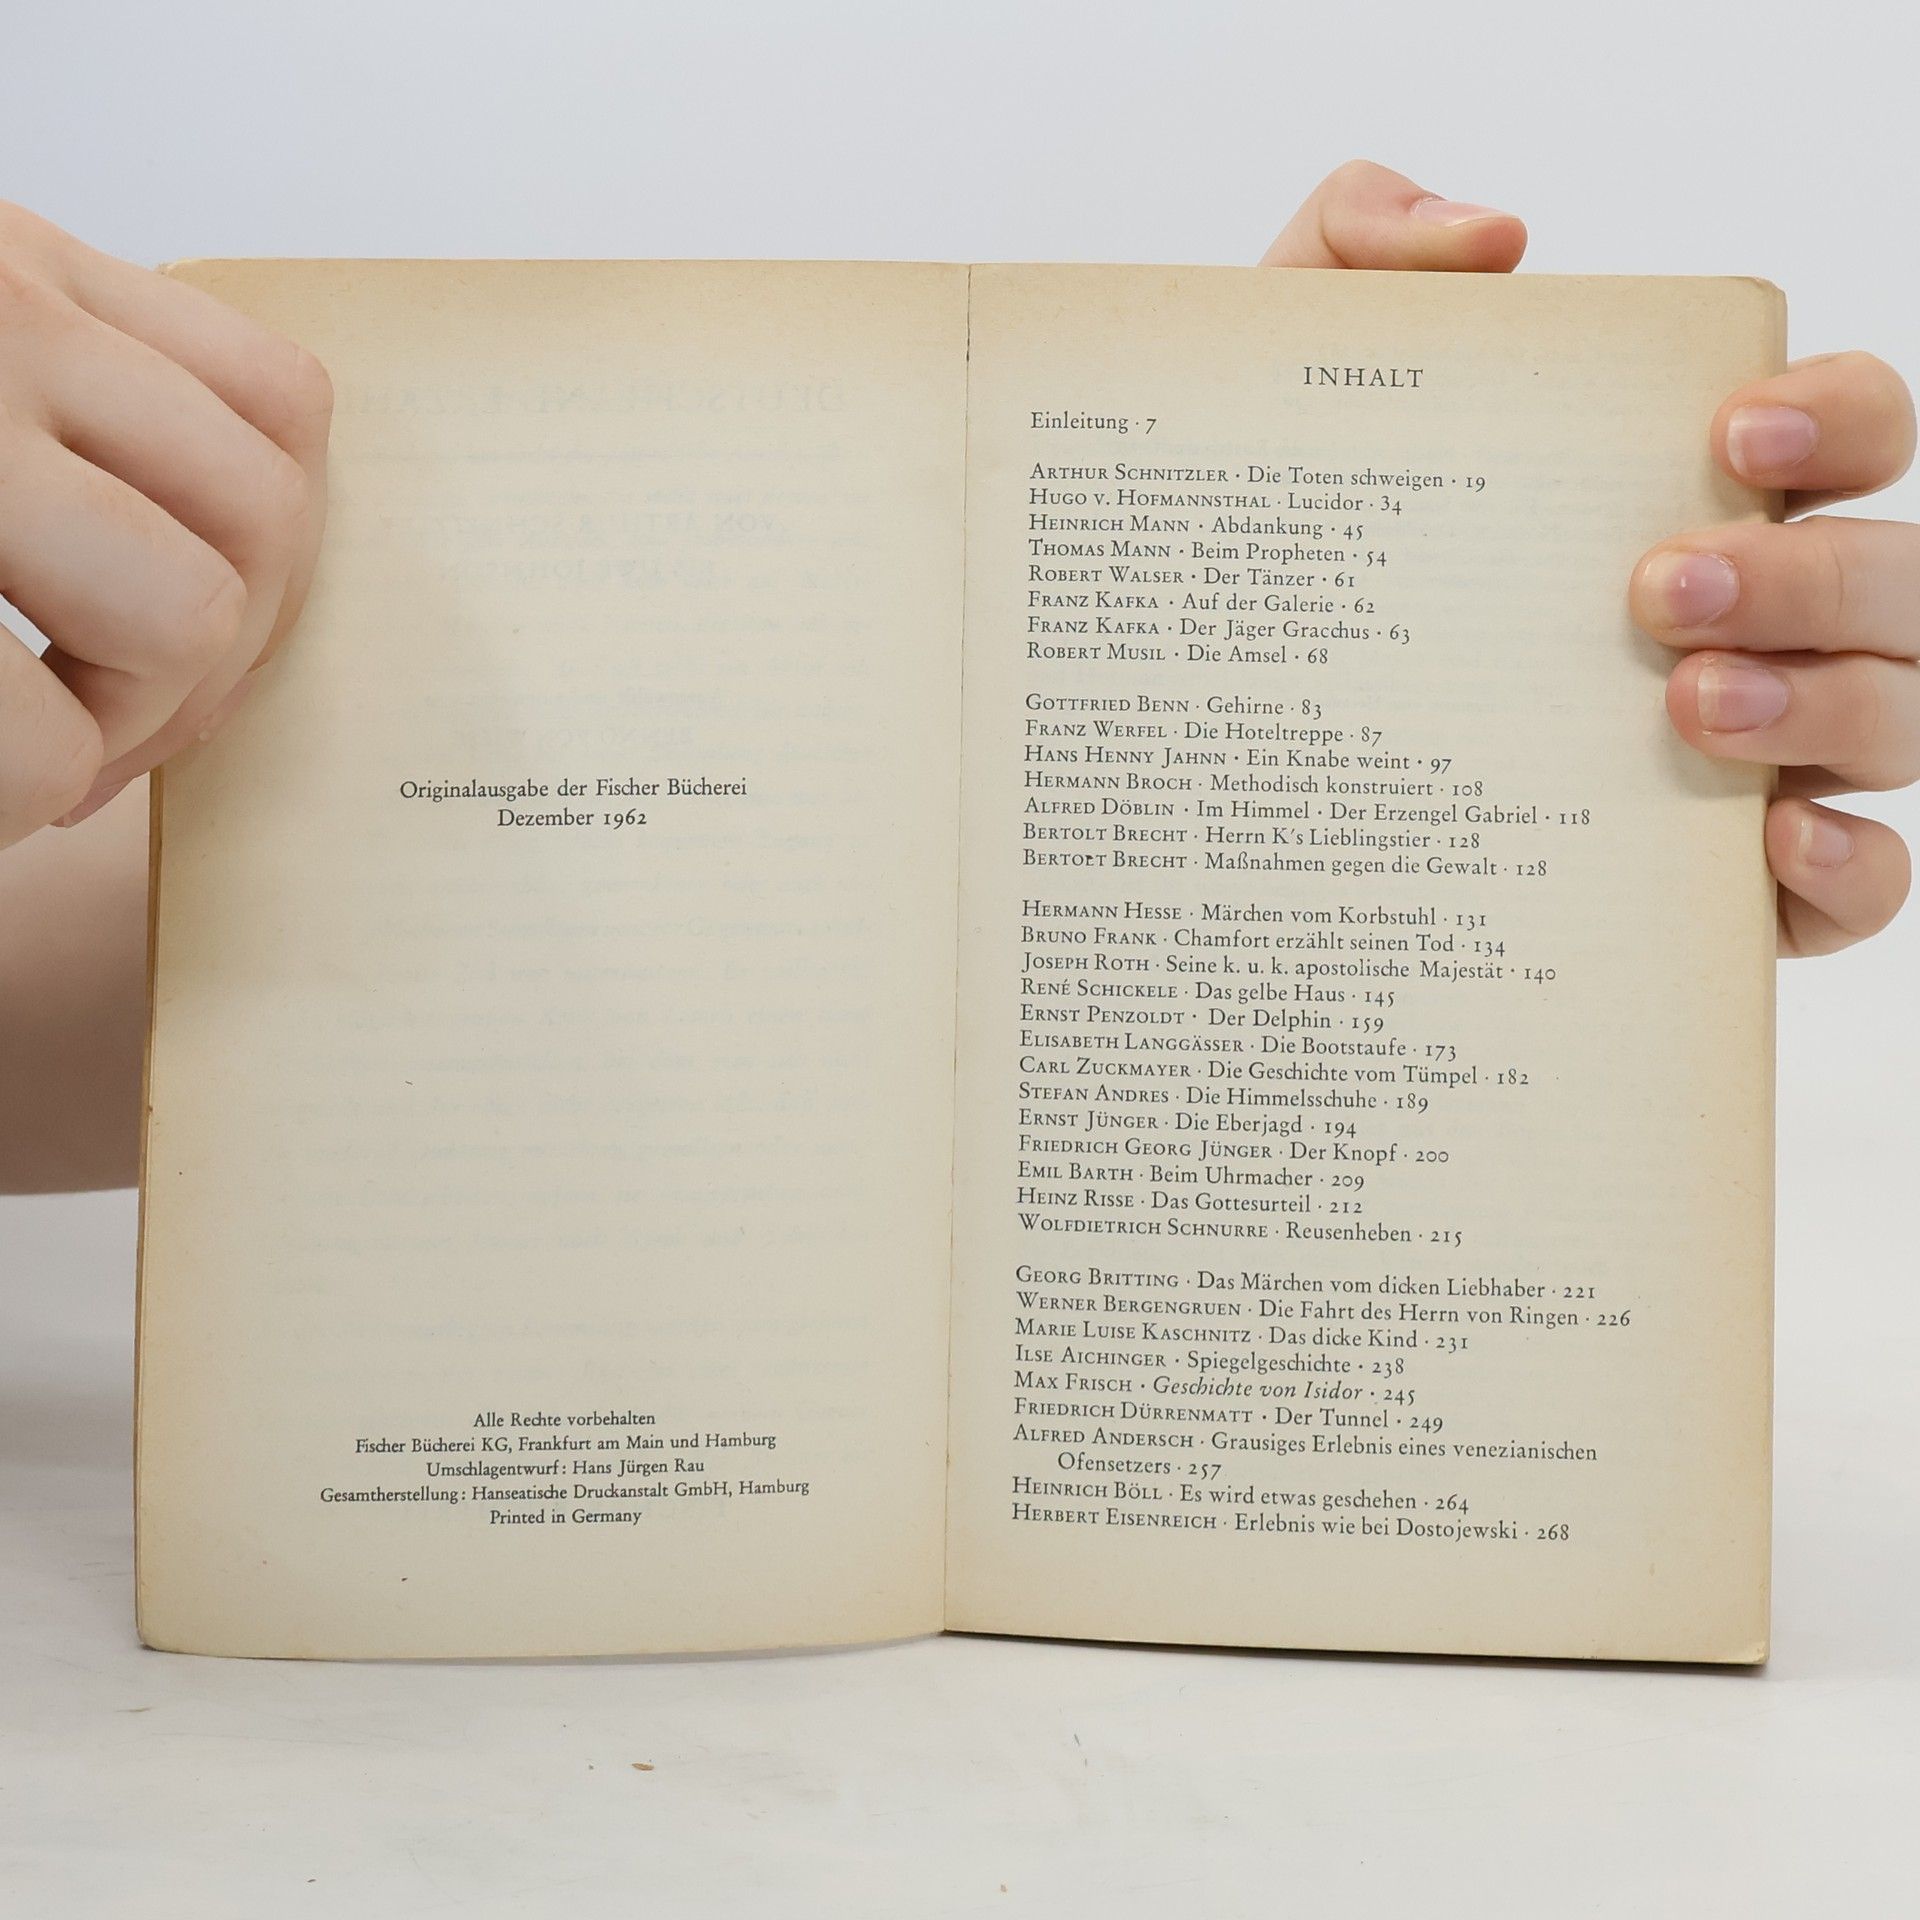 Originalausgabe der Fischer Bücherei
Dezember 1962
Alle Rechte vorbehalten
Fischer Bücherei KG, Frankfurt am Main und Hamburg
Umschlagentwurf: Hans Jürgen Rau
Gesamtherstellung: Hanseatische Druckanstalt GmbH, Hamburg
Printed in Germany
INHALT
Einleitung · 7
ARTHUR SCHNITZLER · Die Toten schweigen · 19
HUGO V. HOFMANNSTHAL · Lucidor · 34
HEINRICH MANN · Abdankung · 45
THOMAS MANN · Beim Propheten · 54
ROBERT WALSER · Der Tänzer · 61
FRANZ KAFKA · Auf der Galerie · 62
FRANZ KAFKA · Der Jäger Gracchus · 63
ROBERT MUSIL · Die Amsel · 68
GOTTFRIED BENN · Gehirne · 83
FRANZ WERFEL · Die Hoteltreppe · 87
HANS HENNY JAHNN · Ein Knabe weint · 97
HERMANN BROCH · Methodisch konstruiert · 108
ALFRED DÖBLIN · Im Himmel · Der Erzengel Gabriel · 118
BERTOLT BRECHT · Herrn K's Lieblingstier · 128
BERTOLT BRECHT · Maßnahmen gegen die Gewalt · 128
HERMANN HESSE · Märchen vom Korbstuhl · 131
BRUNO FRANK · Chamfort erzählt seinen Tod · 134
JOSEPH ROTH · Seine k. u. k. apostolische Majestät · 140
RENÉ SCHICKELE · Das gelbe Haus · 145
ERNST PENZOLDT · Der Delphin · 159
ELISABETH LANGGÄSSER · Die Bootstaufe · 173
CARL ZUCKMAYER · Die Geschichte vom Tümpel · 182
STEFAN ANDRES · Die Himmelsschuhe · 189
ERNST JÜNGER · Die Eberjagd · 194
FRIEDRICH GEORG JÜNGER · Der Knopf · 200
EMIL BARTH · Beim Uhrmacher · 209
HEINZ RISSE · Das Gottesurteil · 212
WOLFDIETRICH SCHNURRE · Reusenheben · 215
GEORG BRITTING · Das Märchen vom dicken Liebhaber · 221
WERNER BERGENGRUEN · Die Fahrt des Herrn von Ringen · 226
MARIE LUISE KASCHNITZ · Das dicke Kind · 231
ILSE AICHINGER · Spiegelgeschichte · 238
MAX FRISCH · Geschichte von Isidor · 245
FRIEDRICH DÜRRENMATT · Der Tunnel · 249
ALFRED ANDERSCH · Grausiges Erlebnis eines venezianischen
Ofensetzers · 257
HEINRICH BÖLL · Es wird etwas geschehen · 264
HERBERT EISENREICH · Erlebnis wie bei Dostojewski · 268